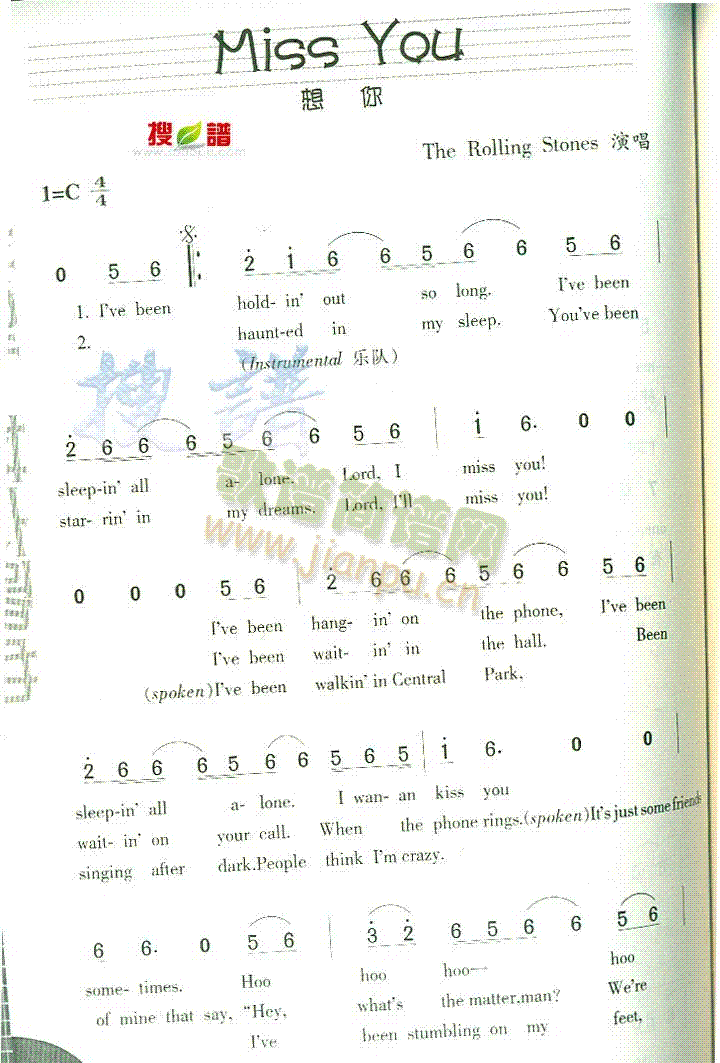 Miss You
想 你
搜 譜
The Rolling Stones 演唱
1=C 4/4
0 5 6 2 i 6 6 5 6 6 5 6
1. I've been hold- in' out so long. I've been
2. haunt-ed in my sleep, You've been
(Instrumental 乐队)
搜 譜
2 6 6 6 5 6 6 5 6 i 6. 0 0
sleep-in' all a- lone. Lord, I miss you!
star- rin' in my dreams. Lord, I'll miss you!
歌谱简谱网
www.jianpu.cn
0 0 0 5 6 2 6 6 6 5 6 6 5 6
I've been hang- in' on the phone, I've been
I've been wait- in' in the hall. Been
(spoken)I've been walkin' in Central Park,
2 6 6 6 5 6 6 5 6 5 i 6. 0 0
sleep-in' all a- lone. I wan- an kiss you
wait- in' on your call. When the phone rings.(spoken)It's just some friends
singing after dark.People think I'm crazy.
6 6. 0 5 6 3 2 6 5 6 6 5 6
some- times. Hoo hoo hoo— hoo
of mine that say, "Hey, what's the matter,man? We're
I've been stumbling on my feet,